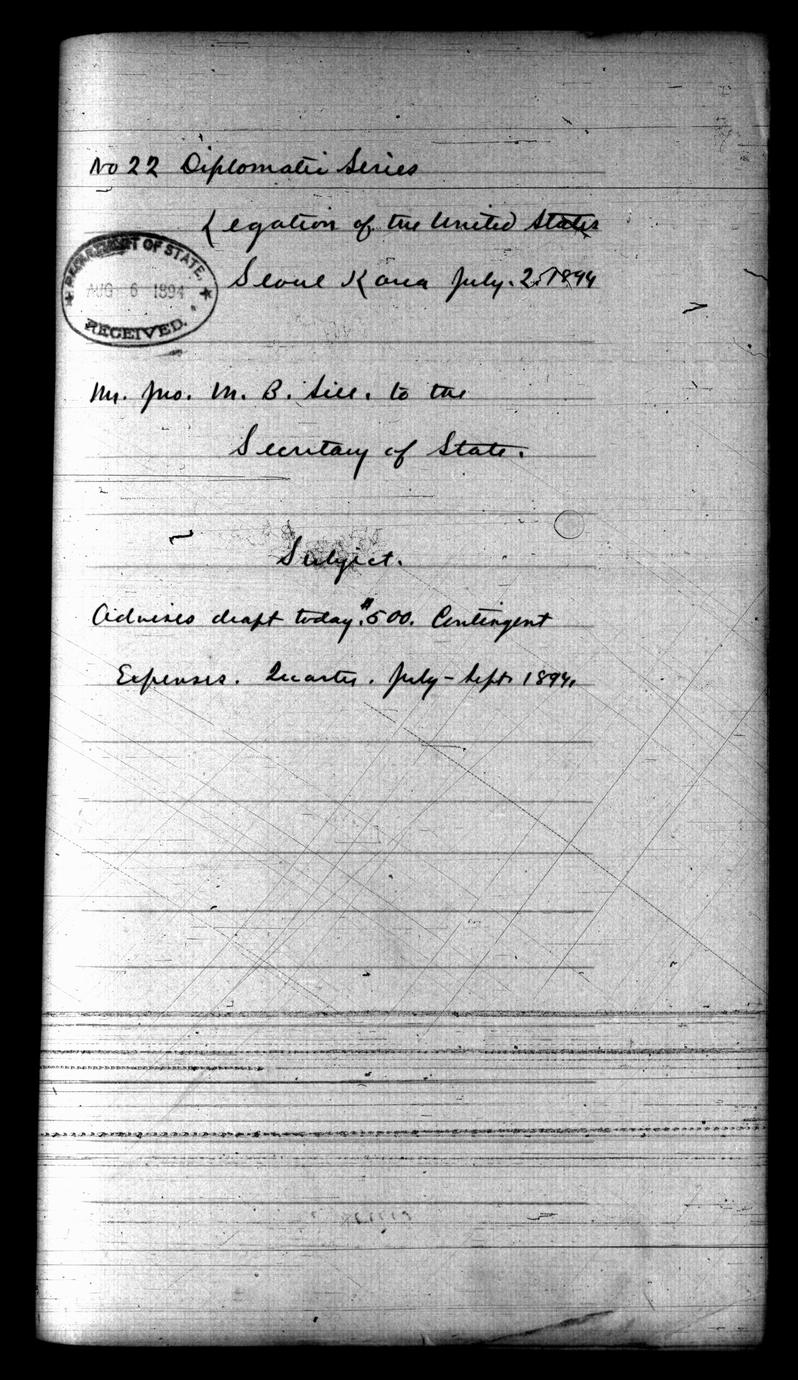 No 22 Diplomatic Series
Legation of the United States
DEPARTMENT OF STATE,
AUG 6 1894
RECEIVED.
Seoul Korea July. 2. 1894
Mr. Jno. M. B. Sill. to the
Secretary of State.
Subject.
Advises draft today. $500. Contingent
Expenses. Quarter. July - Sept. 1894.